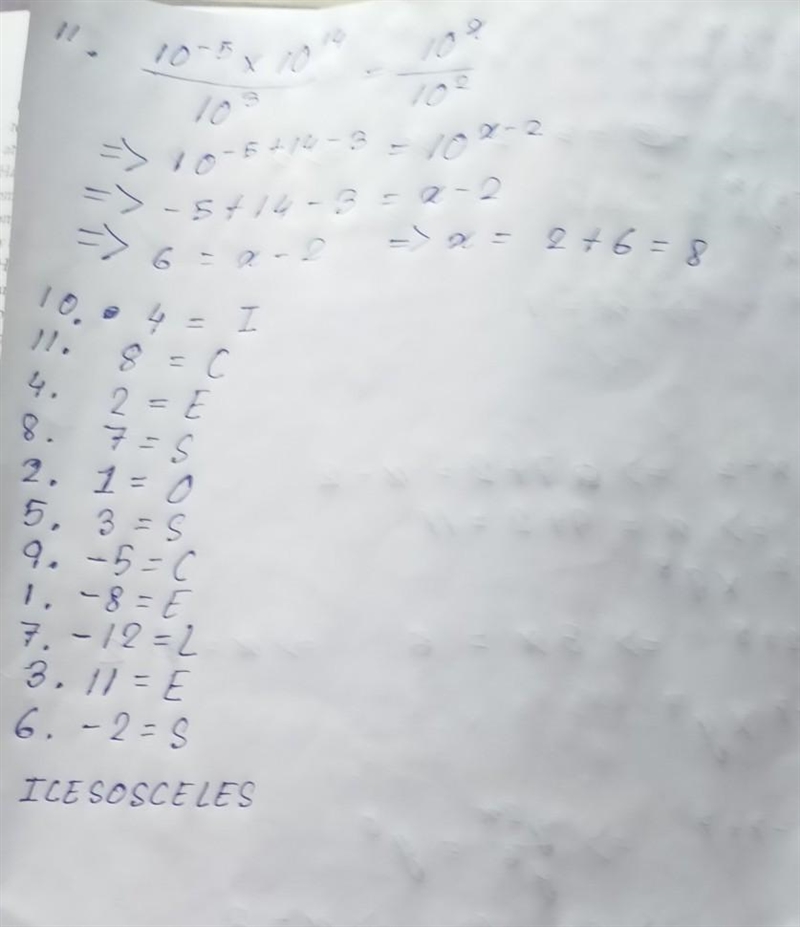 11. (10^-5 × 10^14) / 10^3 = 10^x / 10^2
=> 10^(-5+14-3) = 10^(x-2)
=> -5+14-3 = x-2
=> 6 = x-2 => x = 2+6 = 8
10. 4 = I
11. 8 = C
4. 2 = E
8. 7 = S
2. 1 = O
5. 3 = S
9. -5 = C
1. -8 = E
7. -12 = L
3. 11 = E
6. -2 = S
ICESOSCELES